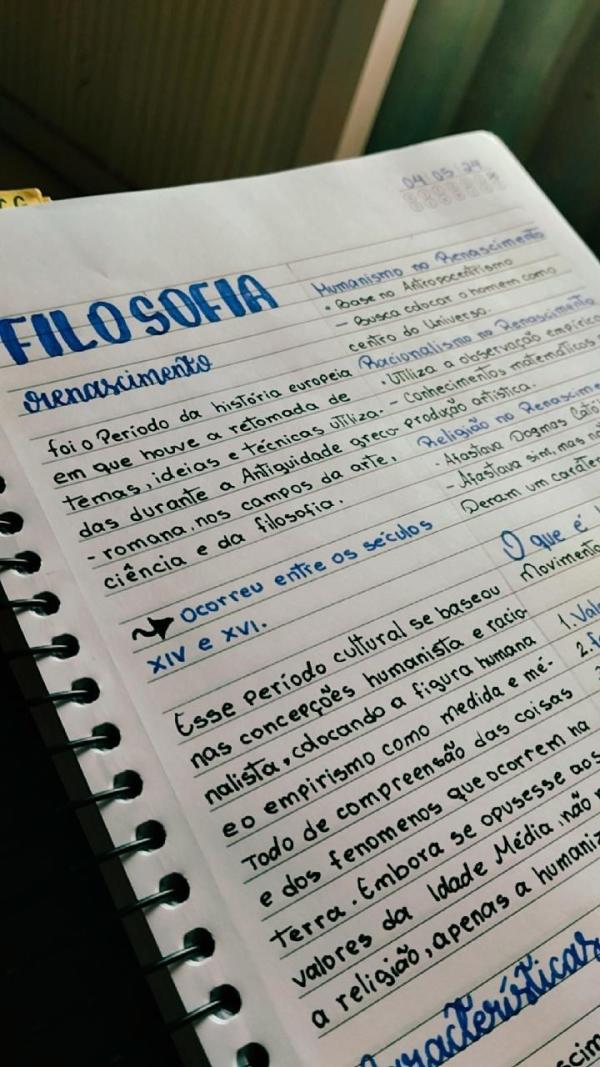 04 05 24
FILOSOFIA
Renascimento
foi o Período da história europeia
em que houve a retomada de
temas, ideias e técnicas utiliza-
das durante a Antiguidade greco-
-romana, nos campos da arte,
ciência e da filosofia.
Ocorreu entre os séculos
XIV e XVI.
Esse período cultural se baseou
nas concepções humanista e racio-
nalista, colocando a figura humana
e o empirismo como medida e mé-
todo de compreensão das coisas
e dos fenomenos que ocorrem na
terra. Embora se opusesse aos
valores da Idade Média não
a religião, apenas a humaniz
Características
Humanismo no Renascimento
• Base no Antropocentrismo
- Busca colocar o homem como
centro do Universo.
Racionalismo no Renascimento
• Utiliza a observação empírica
- Conhecimentos matemáticos
produção artística.
Religião no Renascime
• Afastava Dogmas Cató
- Afastava sim, mas
Deram um caráte
O que é
Movimento
1. Valo
2.